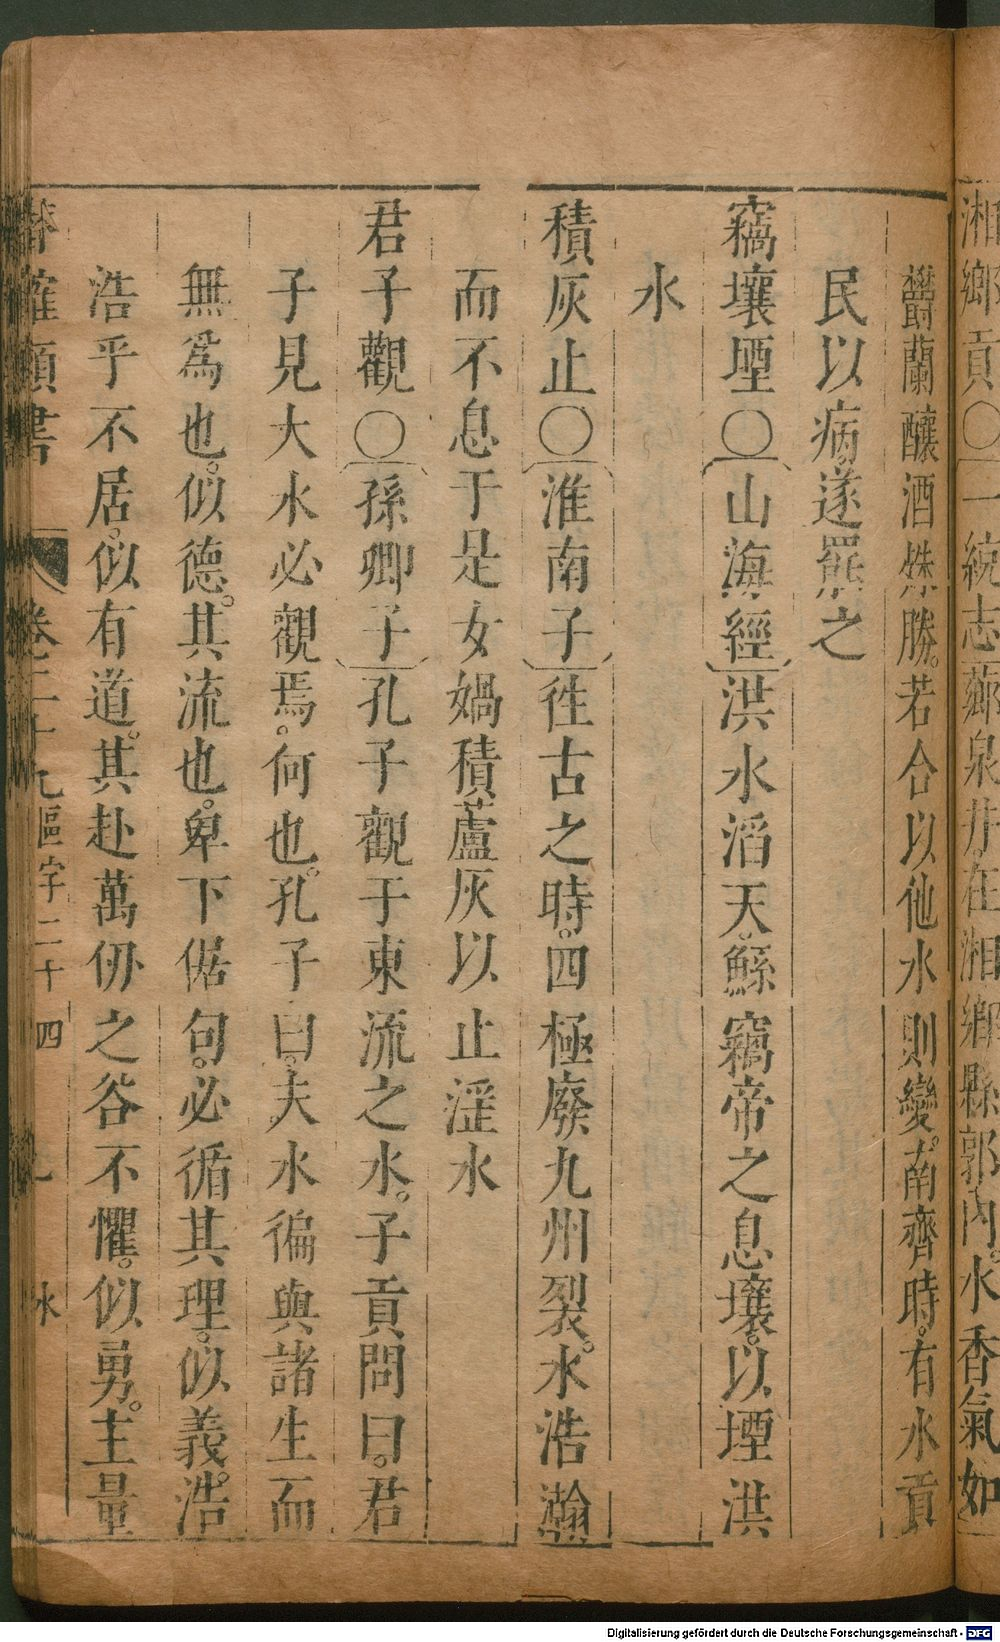 湘鄉貢〇一統志薌泉井在湘鄉縣郭內。水香氣如
欝蘭釀酒殊勝。若合以他水則變。南齊時。有水貢
民以病。遂罷之
竊壤堙〇山海經洪水滔天。鯀竊帝之息壤。以堙洪
水
積灰止〇淮南子徃古之時。四極廢九州裂。水浩瀚
而不息于是女媧積蘆灰以止淫水
君子觀〇孫卿子孔子觀于東流之水。子貢問曰。君
子見大水必觀焉。何也。孔子曰。夫水徧與諸生而
無爲也。似德。其流也。卑下倨句。必循其理。似義。浩
浩乎不居。似有道。其赴萬仞之谷不懼。似勇。主量
類書 卷三十九區字二十四 水
Digitalisierung gefördert durch die Deutsche Forschungsgemeinschaft - DFG